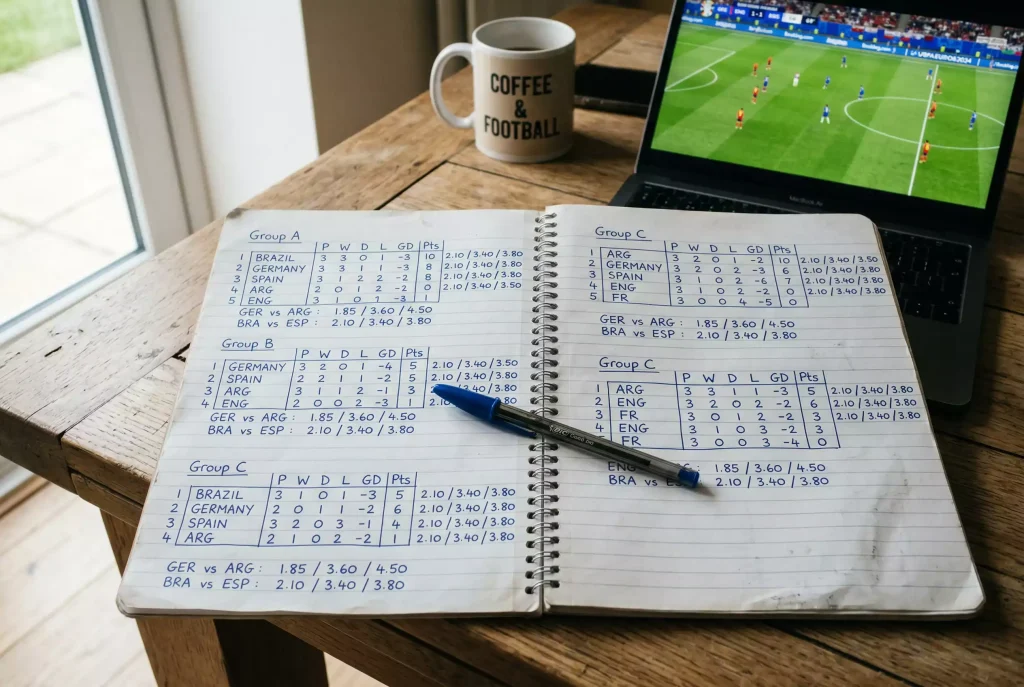 COFFEE
&
FOOTBALL
UEFA EURO2024
Group A
P W D L GD Pts
1 BRAZIL 3 3 0 1 -3 10 2.10/3.40/3.80
2 GERMANY 3 3 1 1 -3 8 2.10/3.40/3.80
3 SPAIN 3 1 2 2 -2 8 2.10/3.40/3.80
4 ARG 2 0 1 2 -2 0 2.10/3.40/3.50
5 ENG 3 1 0 1 -3 1
GER vs ARG : 1.85 / 3.60 / 4.50
BRA vs ESP : 2.10 / 3.40 / 3.80
Group B
P W D L GD Pts
1 GERMANY 3 2 0 1 -4 5 2.10/3.40/3.50
2 SPAIN 2 2 1 1 -2 5 2.10/3.40/3.80
3 ARG 3 1 1 2 -1 3 3.40/3.80
4 ENG 2 0 0 2 -3 2.10/3.40/3.80
GER vs ARG : 1.85 / 3.60 / 4.50
BRA vs ESP : 2.10 / 3.40 / 3.80
Group C
P W D L GD Pts
1 BRAZIL 3 1 0 1 -3 5 2.10/3.40/3.80
2 GERMANY 2 0 1 1 -2 6 2.10/3.40/3.80
3 SPAIN 3 2 0 3 -1 4 2.10/3.40/3.80
4 ARG 2 1 0 2 -2 1 2.10/3.40/3.80
GER vs ARG : 1.85 / 3.60 / 4.50
BRA vs ESP : 2.10 / 3.40 / 3.80
Group C
P W D L GD Pts
1 ARG 3 2 0 1 -2 10 2.10/3.40/3.50
2 GERMANY 3 2 0 2 -3 6 2.10/3.40/3.80
3 SPAIN 3 1 0 2 -6 7 2.10/3.40/3.80
4 ENG 3 1 0 2 -2 0 2.10/3.40/3.80
5 FR 3 0 0 4 -5 0
GER vs ARG : 1.85 / 3.60 / 4.50
BRA vs ESP : 2.10 / 3.40 / 3.80
Group C
P W D L GD Pts
1 ARG 3 3 1 1 -3 5 2.10/3.40/3.80
2 ENG 3 2 0 2 -2 6 2.10/3.40/3.80
3 FR 3 0 1 2 -2 3 2.10/3.40/3.80
4 ENG 3 1 0 3 -2 3
FR 3 0 0 3 -4 0
ENG : 1.85 / 3.60 / 4.50
BRA vs 2.10 / 3.40 / 3.80